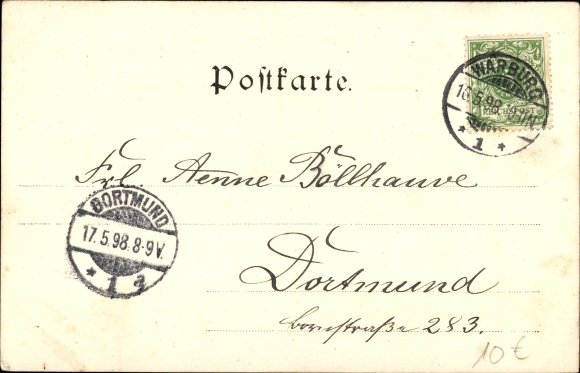 WARBURG
16.5.98
REICHSPOST
* 1 *
Postkarte.
Frl. Aenne Böllhauve
DORTMUND
17.5.98.8-9V.
* 1 a
Dortmund
Bornstraße 283.
10 €